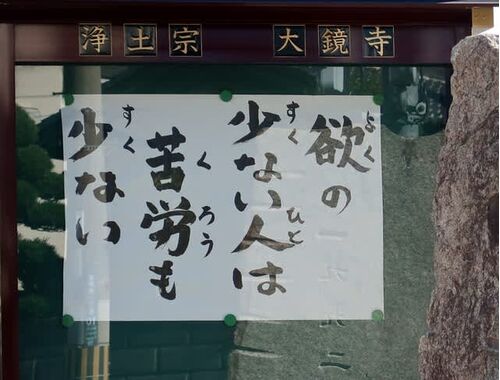 浄土宗 大鏡寺
欲の
少ない人は
苦労も
少ない
よく
すく
ひと
くろう
すく
一九九二